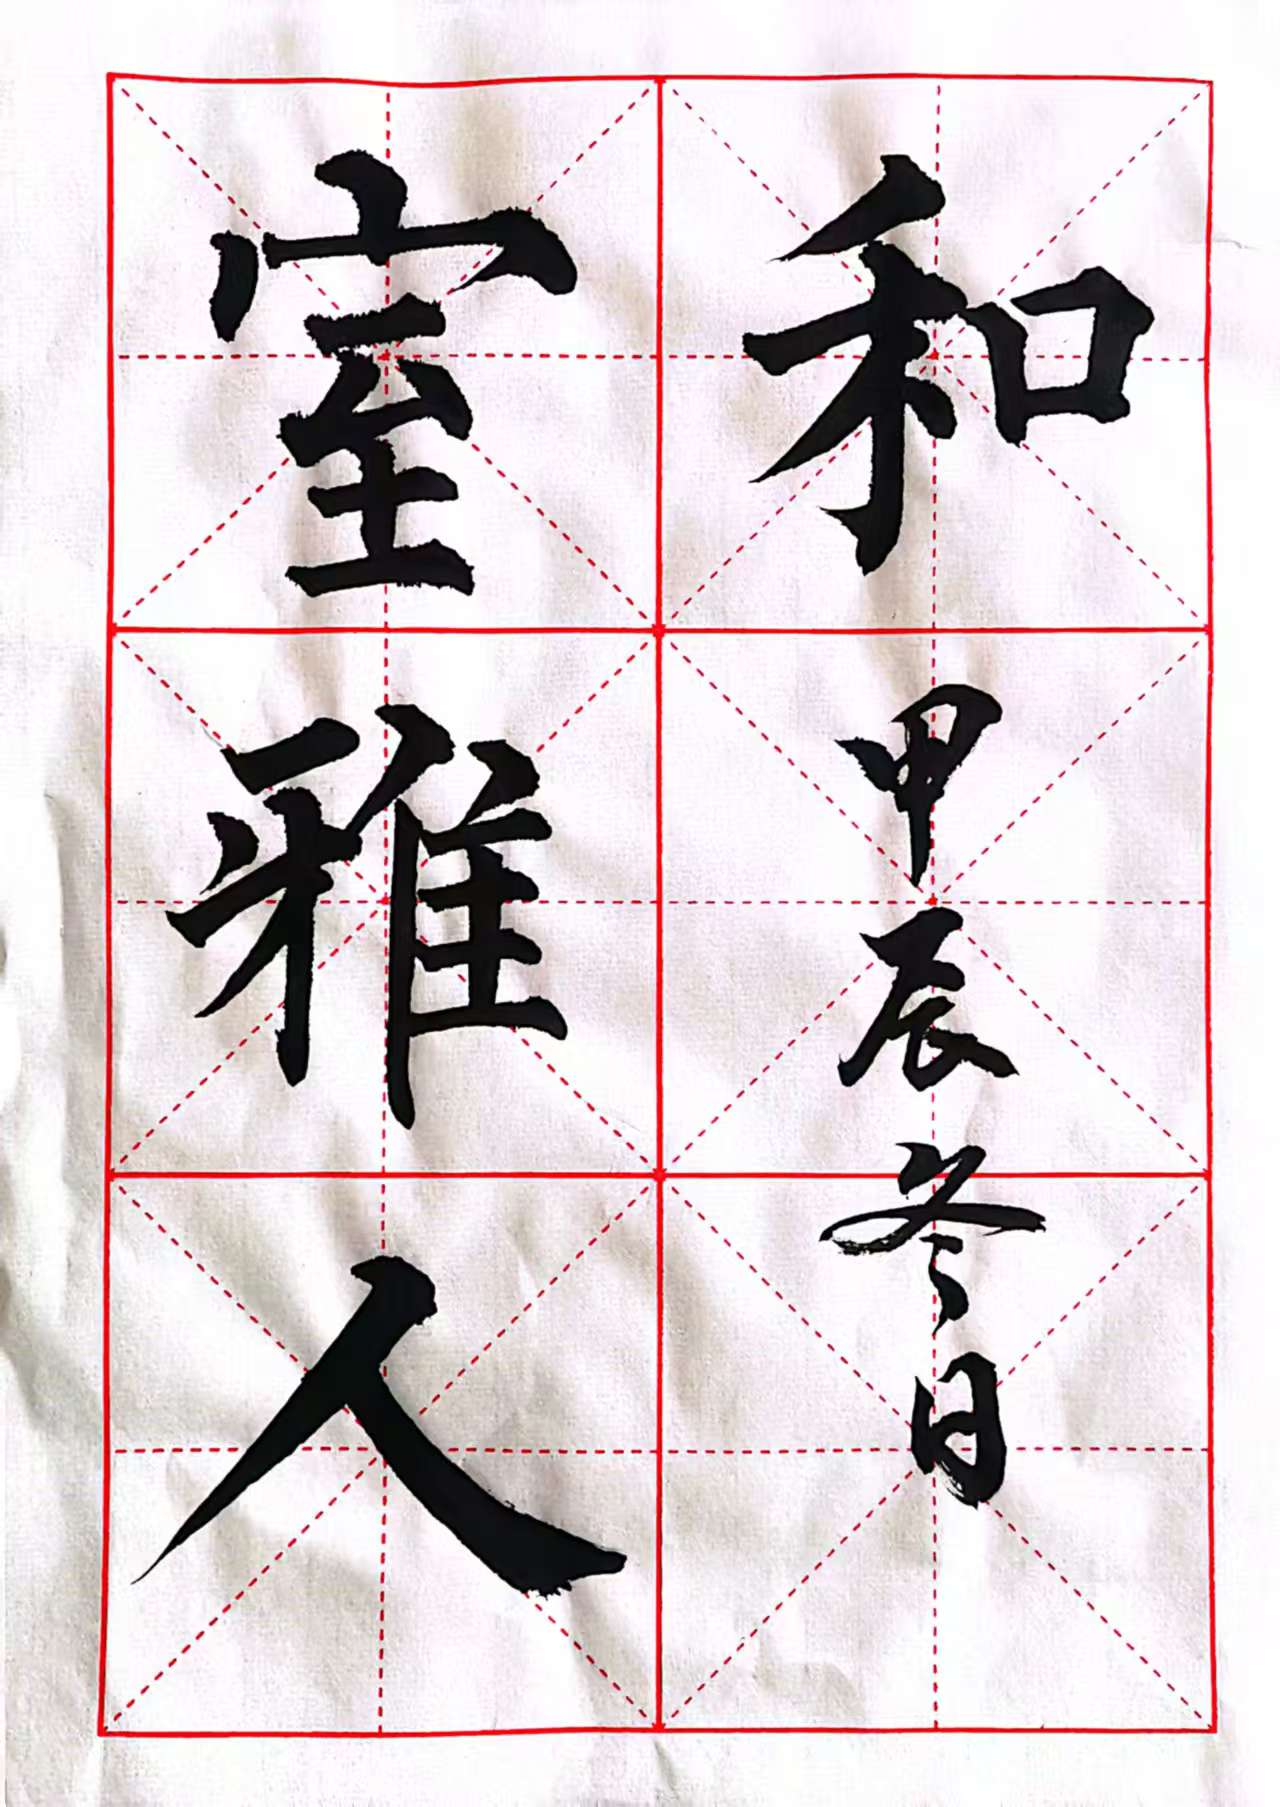 室雅人
和
甲辰冬日